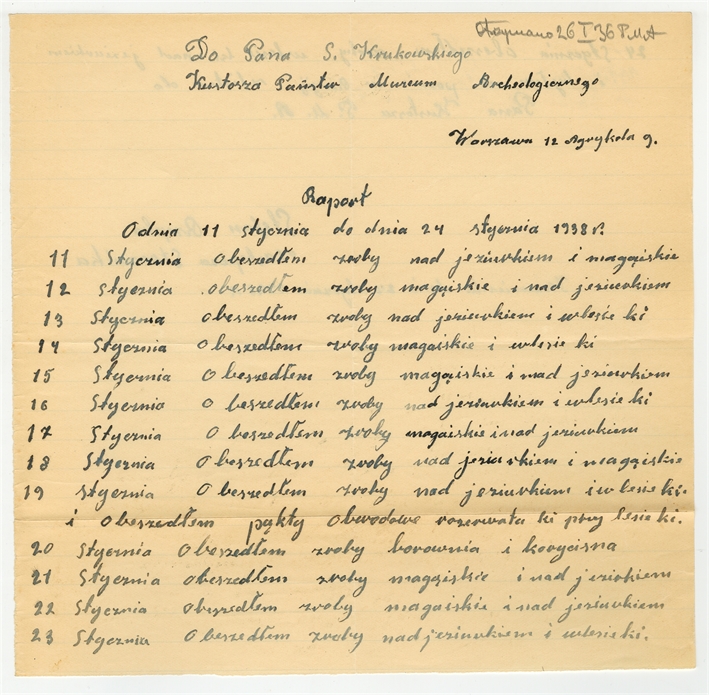 Otrzymano 26 I 36 P.M.A
Do Pana S. Krukowskiego
Kustosza Państw Muzeum Archeologicznego
Warszawa 12 Agrykola 9.
Raport
Odnia 11 stycznia do dnia 24 stycznia 1938 r.
11 Stycznia Obeszedłem zroby nad jeziurkiem i magąiskie
12 Stycznia obeszedłem zroby magąiskie i nad jeziurkiem
13 Stycznia obeszedłem zroby nad jeziurkiem i wlesie ki
14 Stycznia Obeszedłem zroby magaiskie i wlesie ki
15 Stycznia Obeszedłem zroby magąiskie i nad jeziurkiem
16 Stycznia O beszedłem zroby nad jeziurkiem i wlesie ki
17 Stycznia O beszedłem zroby magaiskie i nad jeziurkiem
18 Stycznia O beszedłem zroby nad jeziurkiem i magąiskie
19 stycznia O beszedłem zroby nad jeziurkiem i wlesie ki.
i obeszedłem pąkty obwodowe rezerwata ki przy lesie ki.
20 Stycznia Obeszedłem zroby borownia i korycisna
21 Stycznia Obeszedłem zroby magąiskie i nad jeziorkiem
22 Stycznia Obeszedłem zroby magaiskie i nad jeziurkiem
23 Stycznia Obeszedłem zroby nad jeziurkiem i wlesie ki.